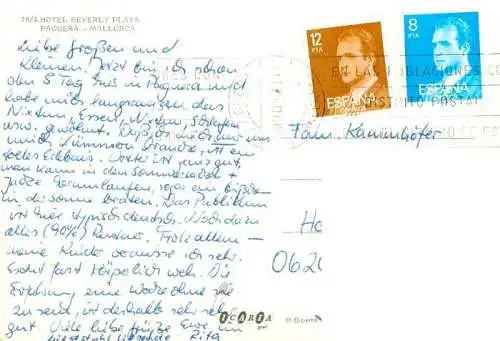 1874 HOTEL BEVERLY PLAYA
PAGUERA - MALLORCA
Liebe Großen und
Kleinen! Jetzt bin ich schon
den 5. Tag in Paguera und
habe mich langsam an das
Nichtstun, Essen, Schlafen
usw. gewöhnt. Daß ich mich nur um
mich kümmern brauche, ist ein
tolles Erlebnis. Wetter ist ganz gut,
man kann in den Sommersachen +
Jacke herumlaufen, sogar ein bißchen
in der Sonne braten. Das Publikum
ist hier typisch deutsch. Noch dazu
alles (90%) Rentner. Trotz allem -
meine Kinder vermisse ich sehr.
Es tut fast körperlich weh. Die
Erfahrung, eine Woche ohne sie
zu sein, ist deshalb sehr
gut. Viele liebe Grüße Eure, im
Liegestuhl liegende Rita
12
PTA
ESPAÑA
8
PTA
ESPAÑA
EN LAS POBLACIONES
DISTRITO POSTAL
Fam. Kamenhöfer
Ha
0620
OCAROA